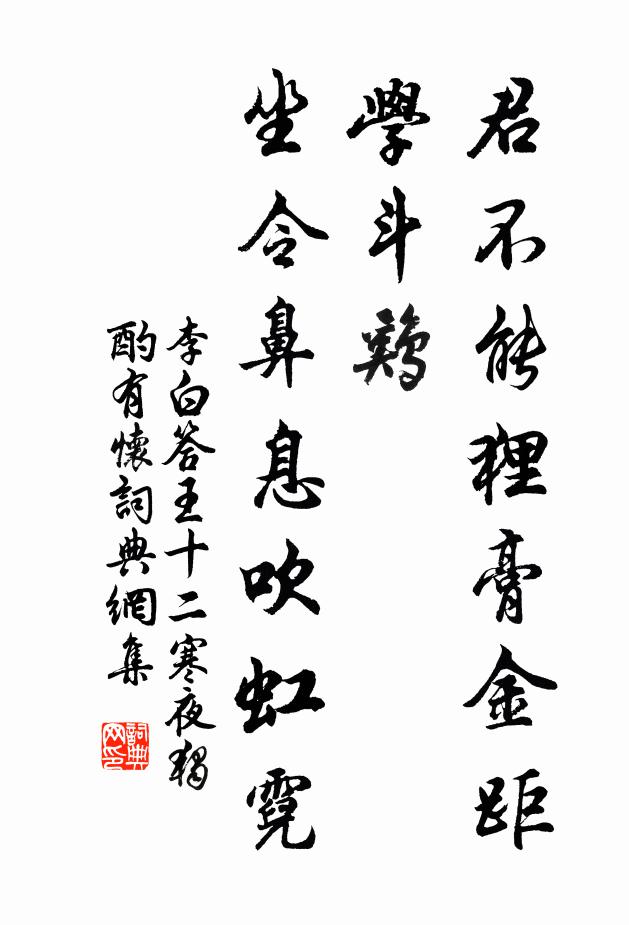 君不能狸膏金距
學斗鷄
坐令鼻息吹虹霓
李白答王十二寒夜獨
酌有懷詞典網集
詞典网印